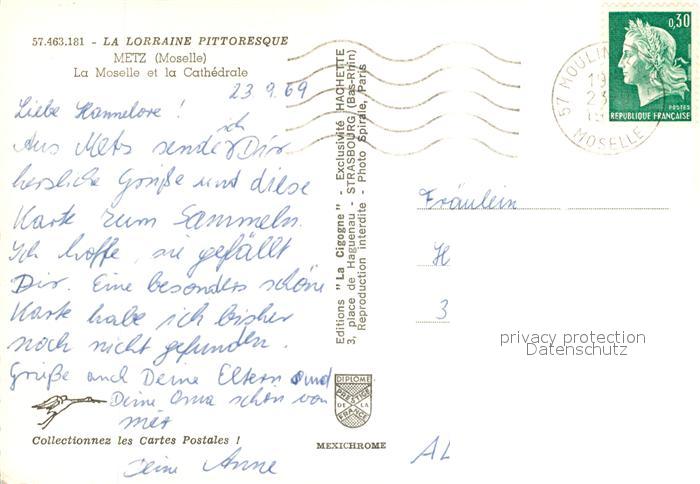 57.463.181 - LA LORRAINE PITTORESQUE
METZ (Moselle)
La Moselle et la Cathédrale
23.9.69
Liebe Hannelore!
ich
Aus Metz sende Dir
herzliche Grüße und diese
Karte zum Sammeln.
Ich hoffe, sie gefällt
Dir. Eine besonders schöne
Karte habe ich bisher
noch nicht gefunden.
Grüße auch Deine Eltern und
Deine Oma schön von
mir
Deine Anne
Collectionnez les Cartes Postales !
Editions "La Cigogne" - Exclusivité HACHETTE
3, place de Haguenau - STRASBOURG (Bas-Rhin)
Reproduction interdite - Photo Spirale, Paris
DIPLOME
PRESTIGE
DE LA
FRANCE
MEXICHROME
0,30
POSTES
REPUBLIQUE FRANÇAISE
57 MOULIN
MOSELLE
Fräulein
H
3
AL
privacy protection
Datenschutz